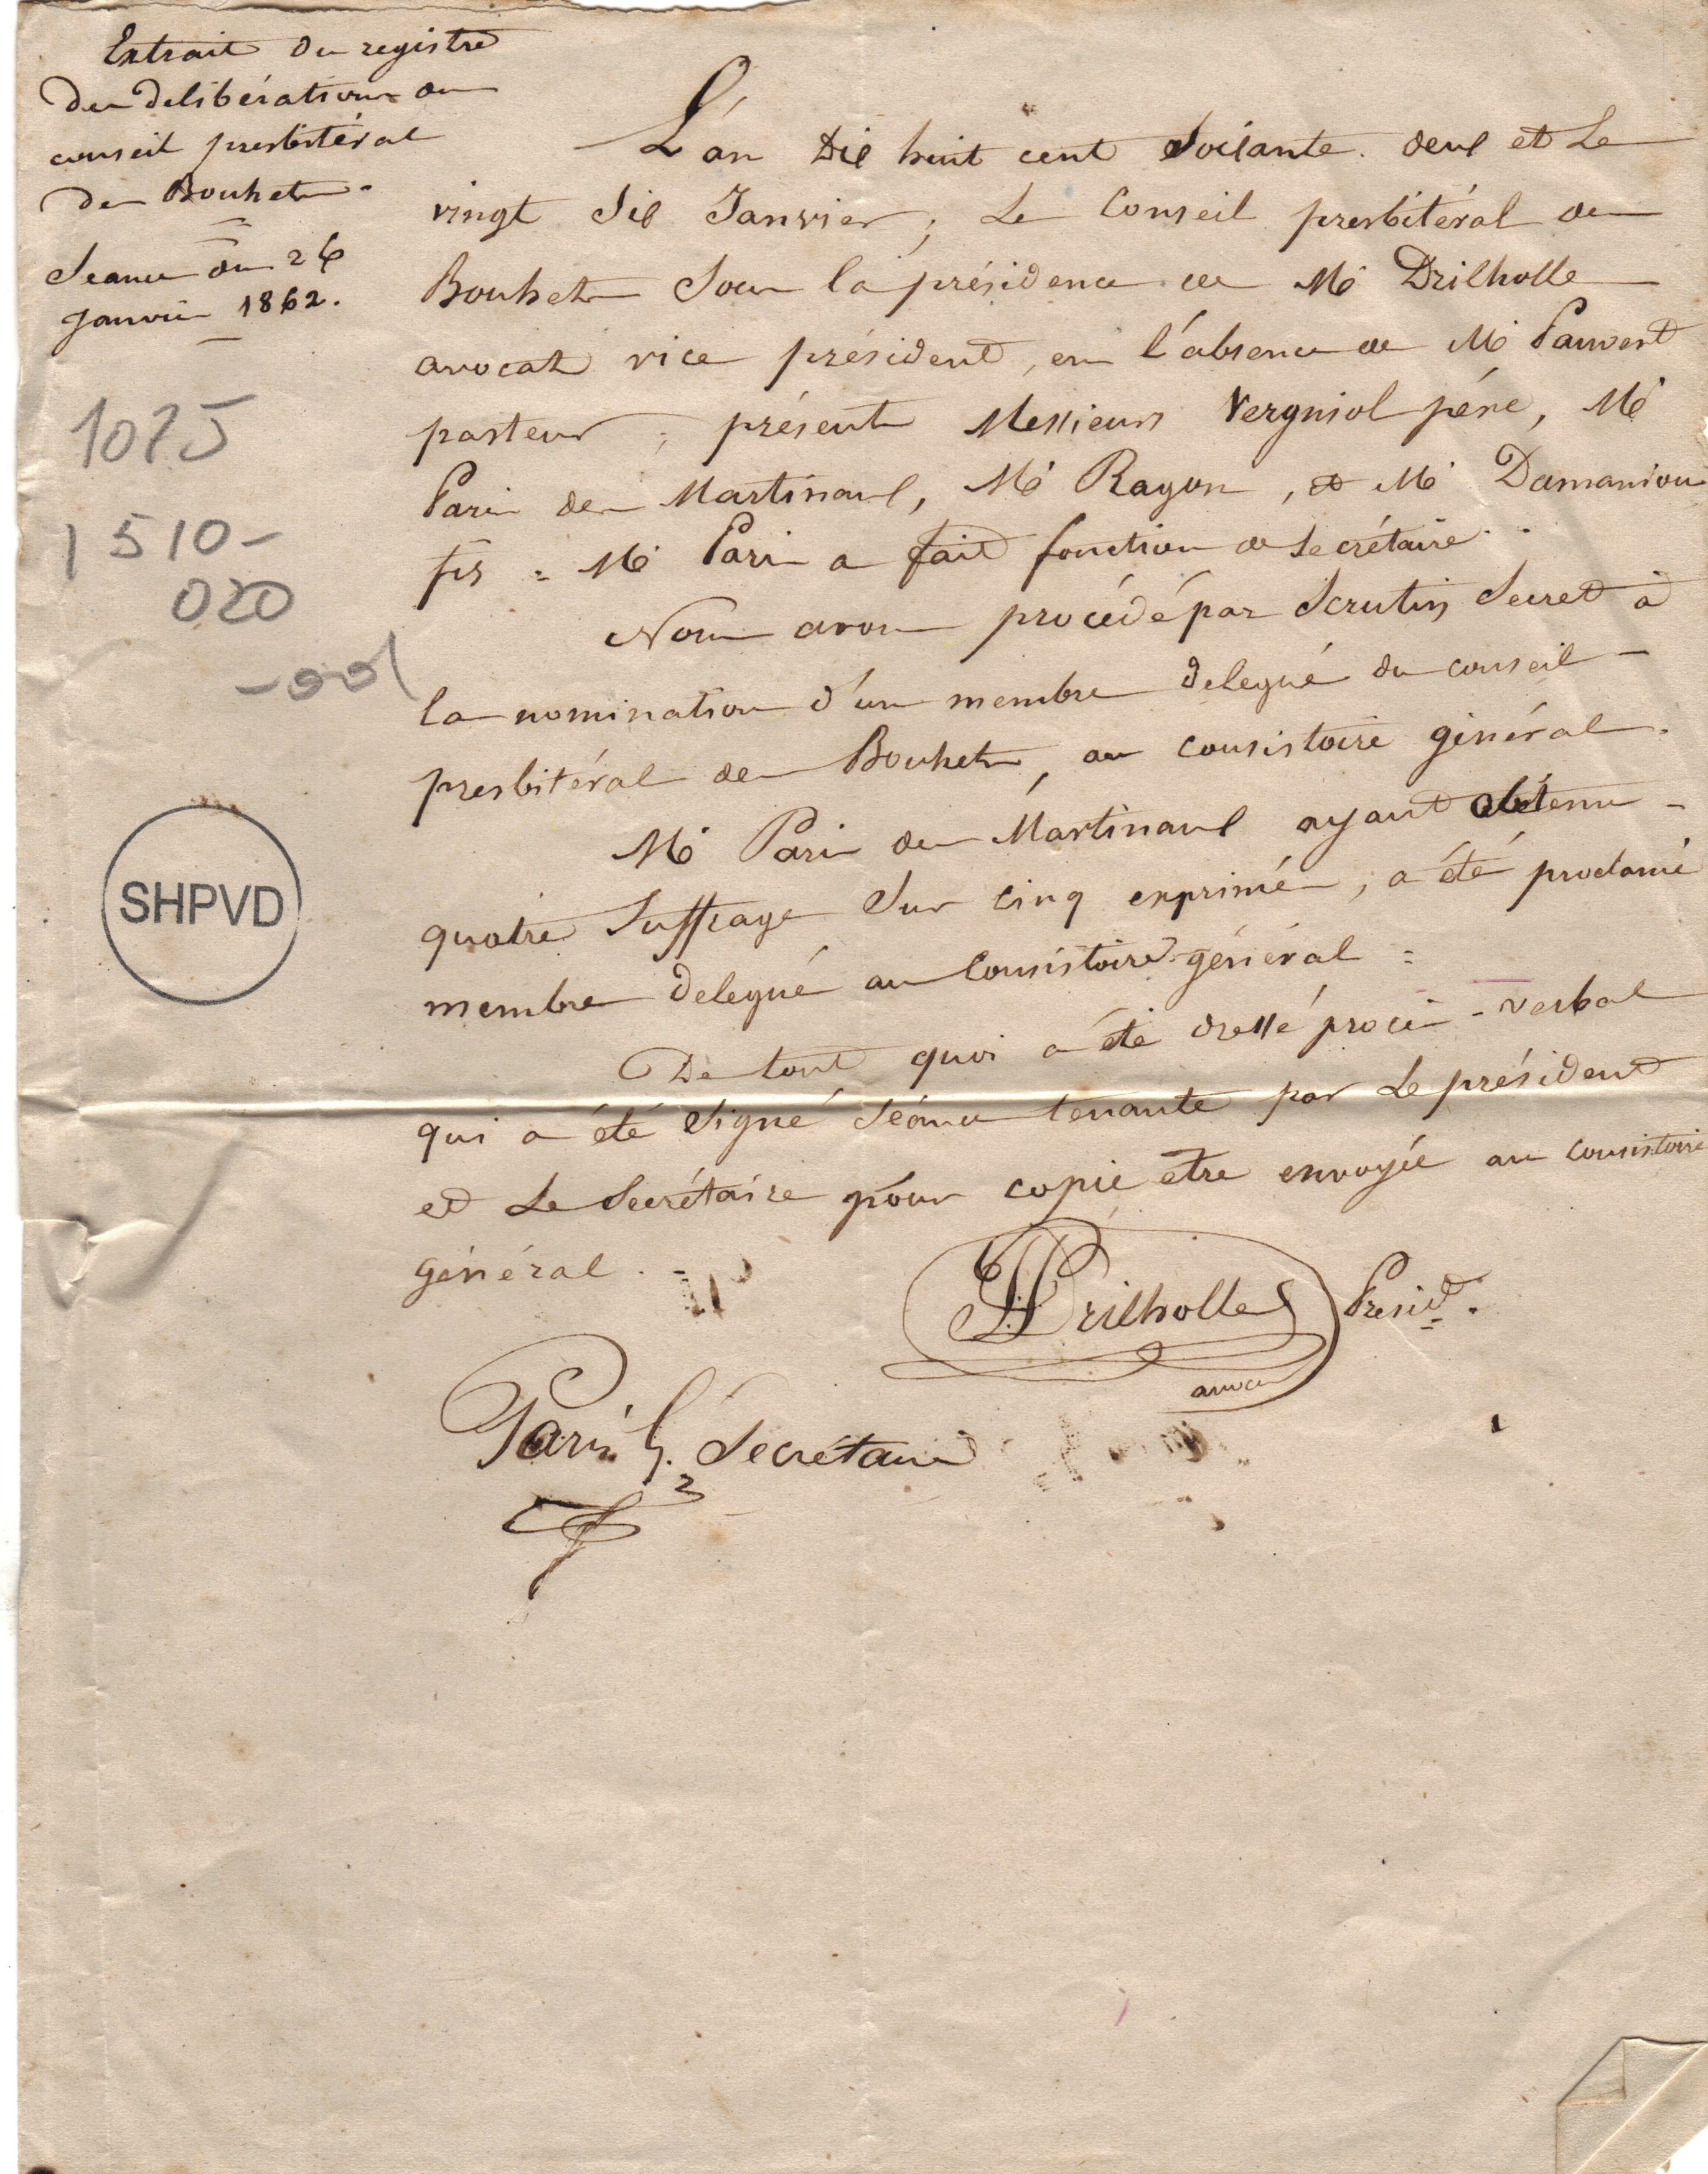 Extrait du registre
des délibérations du
conseil presbitéral
de Bouhets.
Séance du 26
Janvier 1862.
1025
1510-
020
-001
SHPVD
L'an Dix huit cent soixante deux et Le
vingt six Janvier; Le Conseil presbitéral de
Bouhets sous la présidence de Mr Drilholle
avocat vice président, en l'absence de Mr Pauvert
pasteur; présents Messieurs Vergniol père, Mr
Paris des Martinaux, Mr Rayon, et Mr Damaniou
fils = Mr Paris a fait fonction de Secrétaire.
Nous avons procédé par Scrutin Secret à
la nomination d'un membre delegué du conseil
presbitéral de Bouhets, au consistoire général.
Mr Paris des Martinaux ayant obtenu
quatre Suffrages Sur cinq exprimés, a été proclamé
membre delegué au Consistoire général =
De tout quoi a été dressé procès-verbal
qui a été signé séance tenante par Le président
et Le Secrétaire pour copie etre envoyée au consistoire
général.
Drilholle Présidt.
avocat
Paris Secrétaire